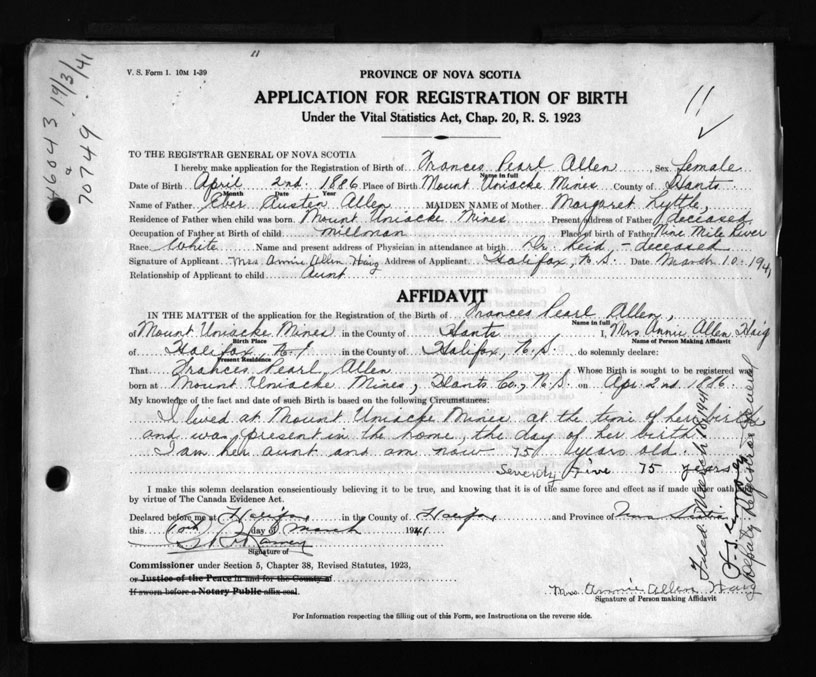 46043 19/3/41
70749
V. S. Form 1. 10M 1-39
PROVINCE OF NOVA SCOTIA
APPLICATION FOR REGISTRATION OF BIRTH
Under the Vital Statistics Act, Chap. 20, R. S. 1923
TO THE REGISTRAR GENERAL OF NOVA SCOTIA
I hereby make application for the Registration of Birth of Frances Pearl Allen Sex female
Name in full
Date of Birth April 2nd. 1886 Place of Birth Mount Uniacke Mines County of Hants
Month Date Year
Name of Father Eber Austin Allen MAIDEN NAME of Mother Margaret Lyttle,
Residence of Father when child was born Mount Uniacke Mines Present address of Father deceased
Occupation of Father at Birth of child millman Place of birth of Father Nine Mile River
Race White Name and present address of Physician in attendance at birth Dr. Reid, - deceased
Signature of Applicant Mrs Annie Allen Haig Address of Applicant Halifax, N.S. Date March 10, 1941
Relationship of Applicant to child aunt
AFFIDAVIT
IN THE MATTER of the application for the Registration of the Birth of Frances Pearl Allen,
Name in full
of Mount Uniacke Mines in the County of Hants I, Mrs. Annie Allen Haig
Birth Place Name of Person Making Affidavit
of Halifax, N.S. in the County of Halifax, N.S. do solemnly declare:
Present Residence
That Frances Pearl Allen Whose Birth is sought to be registered was
born at Mount Uniacke Mines, Hants Co., N.S. on Apr. 2nd. 1886.
My knowledge of the fact and date of such Birth is based on the following Circumstances:
I lived at Mount Uniacke Mines at the time of her birth
and was present in the home, the day of her birth.
I am her aunt and am now 75 years old.
Seventy Five 75 years
I make this solemn declaration conscientiously believing it to be true, and knowing that it is of the same force and effect as if made under oath
by virtue of The Canada Evidence Act.
Declared before me at Halifax in the County of Halifax and Province of Nova Scotia
this 10th day of March 1941
Signature of
Commissioner under Section 5, Chapter 38, Revised Statutes, 1923,
or Justice of the Peace in and for the County of
If sworn before a Notary Public affix seal.
Mrs Annie Allen Haig
Signature of Person making Affidavit
For Information respecting the filling out of this Form, see Instructions on the reverse side.
Filed March 19 1941
Deputy Registrar General